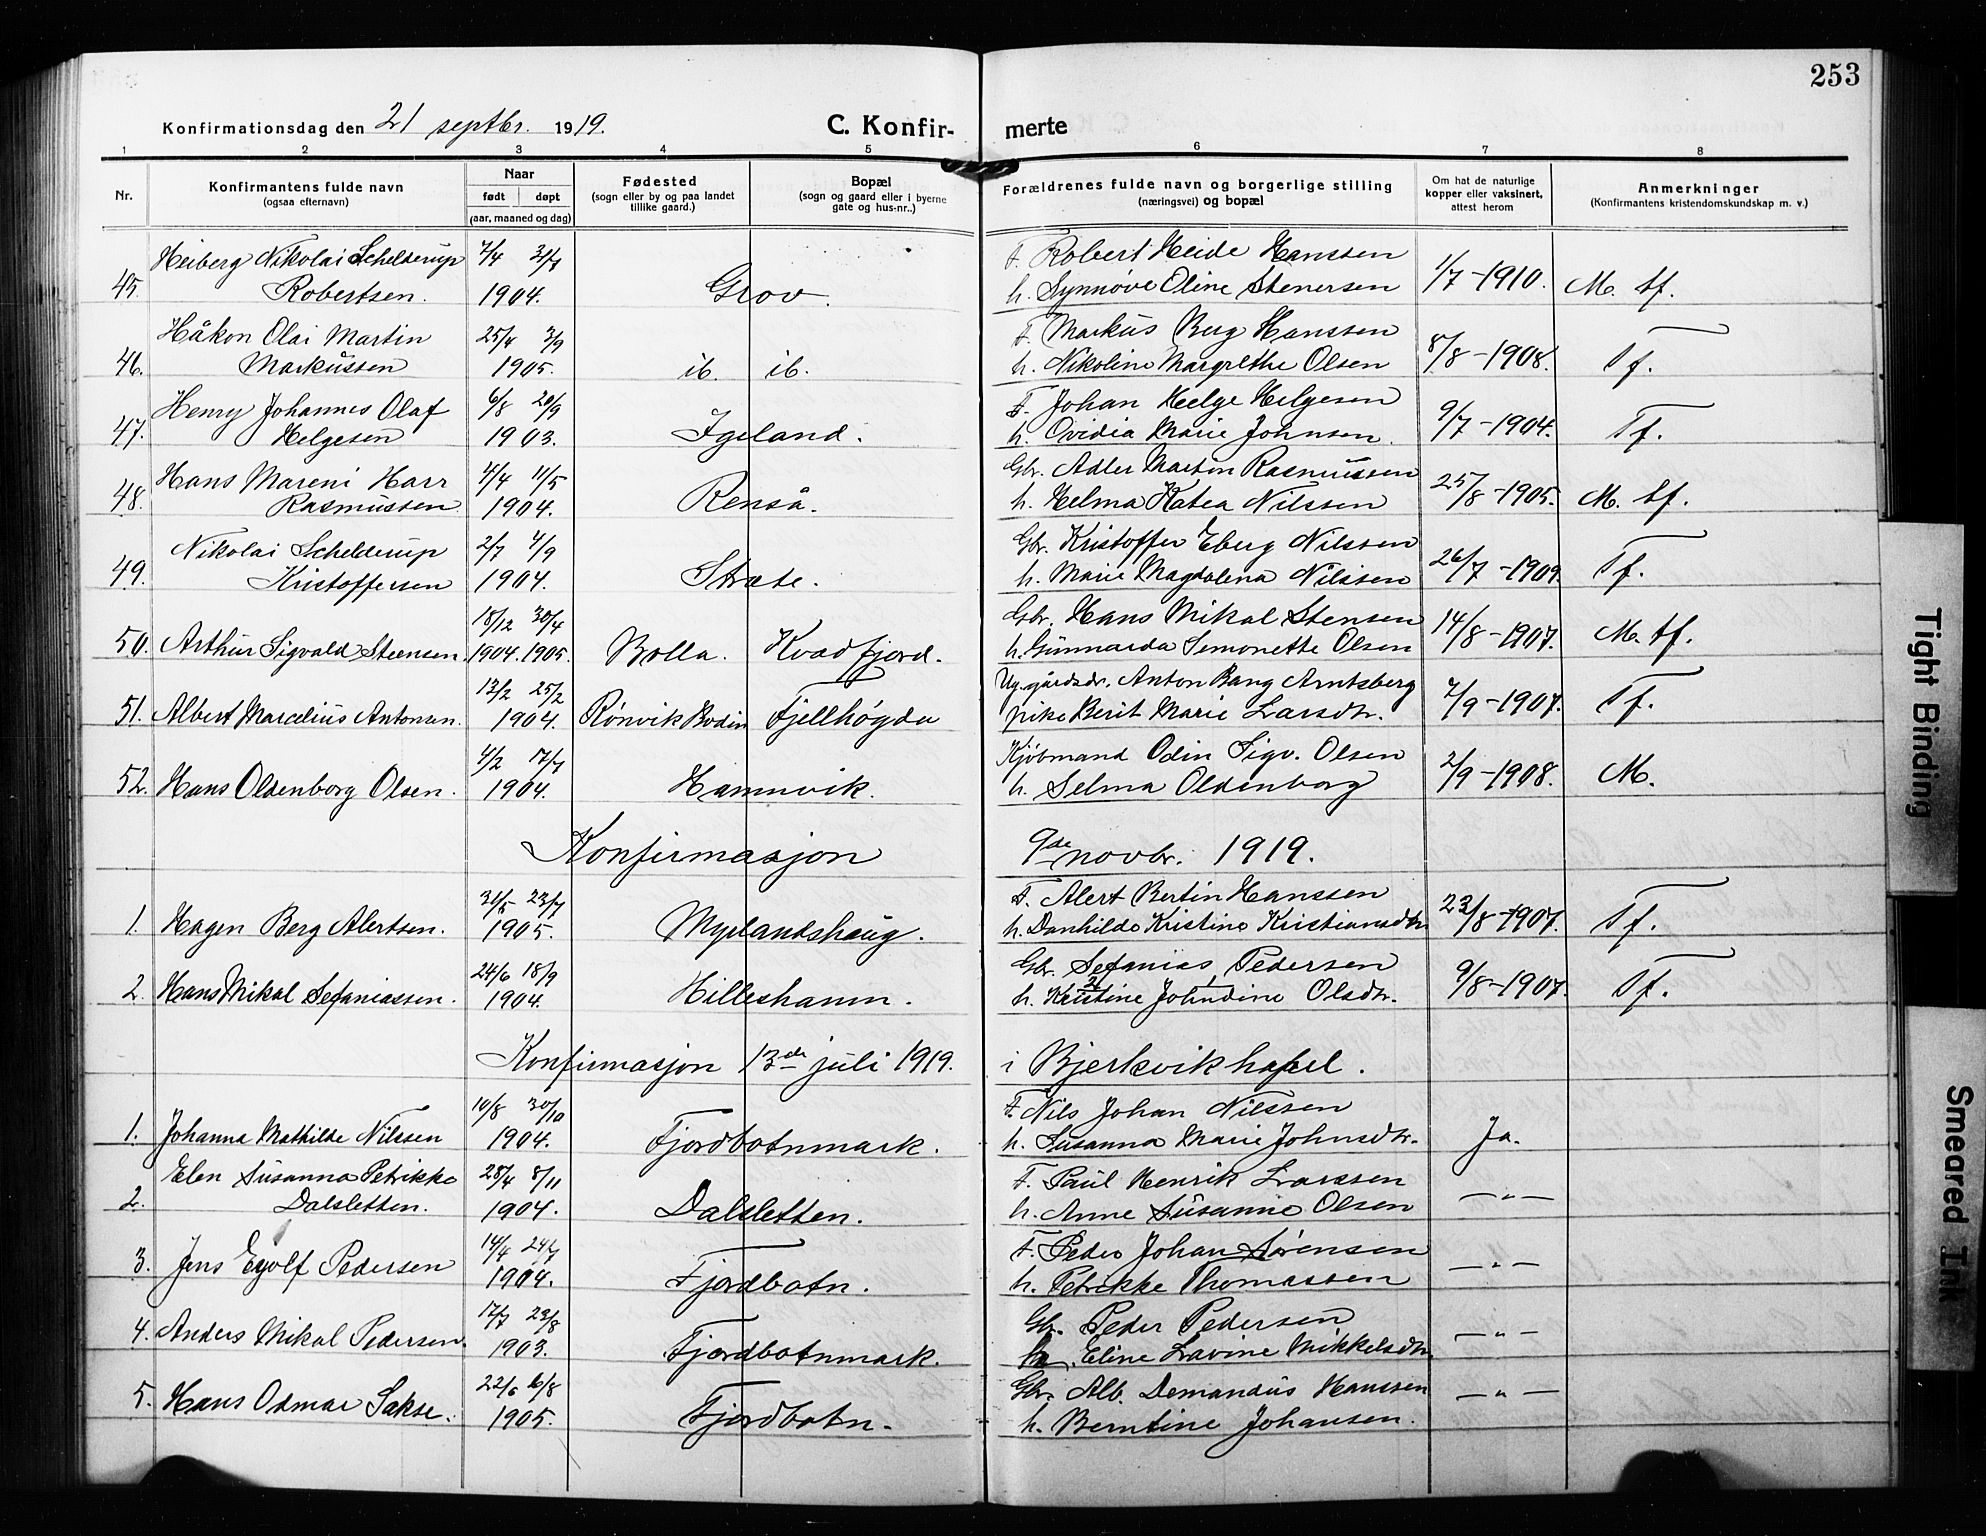 253
Konfirmationsdag den 21 septbr. 1919.
C. Konfir-
merte
1 2 3 4 5 6 7 8
Nr.
Konfirmantens fulde navn
(ogsaa efternavn)
Naar
født døpt
(aar, maaned og dag)
Fødested
(sogn eller by og paa landet
tillike gaard.)
Bopæl
(sogn og gaard eller i byerne
gate og hus-nr..)
Forældrenes fulde navn og borgerlige stilling
(næringsvei) og bopæl
Om hat de naturlige
kopper eller vaksinert,
attest herom
Anmerkninger
(Konfirmantens kristendomskundskap m. v.)
Heiberg Nikolai Schelderup 7/4 31/7 F. Robert Heide Hanssen
45. Robertsen. 1904. Grov. h. Synnøve Oline Stenersen 1/7 -1910. M. tf.
Håkon Olai Martin 25/4 3/9 F. Markus Berg Hanssen
46. Markussen 1905. ib. ib. h. Nikoline Margrethe Olsen 8/8 -1908. Tf.
Henry Johannes Olaf 6/8 20/9 F. Johan Helge Helgesen
47. Helgesen 1903. Igeland. h. Ovidia Marie Johnsen. 9/7 -1904. Tf.
Hans Mareni Harr 4/4 11/5 Gbr. Adler Martin Rasmussen
48. Rasmussen 1904. Renså. h. Helma Katea Nilssen 25/8 -1905. M. tf.
Nikolai Schelderup 2/7 4/9 Gbr. Kristoffer Eberg Nilssen
49. Kristoffersen 1904. Stræte. h. Marie Magdalena Nilssen 26/7 -1909. Tf.
18/12 30/4 Gbr. Hans Mikal Stensen
50. Arthur Sigvald Steensen. 1904. 1905. Bolla. Kvædfjord. h. Gunnarda Semonette Olsen 14/8 -1907. M. tf.
13/2 25/2 Ug. gårdsdr. Anton Bang Arntsberg
51. Albert Marcelius Antonsen. 1904. Rønvik Bodin Fjellhøgda pike Berit Marie Larsdtr. 7/9 -1907. Tf.
4/2 17/7 Kjøbmand Odin Sigv. Olsen
52. Hans Oldenborg Olsen. 1904. Hamnvik. h. Selma Oldenborg 2/9 -1908. M.
Konfirmasjon 9de novbr. 1919.
31/5 23/7 F. Alert Bertin Hanssen
1. Hagen Berg Alertsen. 1905. Myrlandshaug. h. Danhilde Kristine Kristiansdtr. 23/8 -1907. Tf.
24/6 18/9 Gbr. Sefanias Pedersen
2. Hans Mikal Sefaniassen. 1904. Hilleshamn. h. Kristine Johndine Olsdtr. 9/8 -1907. Tf.
Konfirmasjon 13de juli 1919. i Bjerkvik kapel.
10/8 30/10 F. Nils Johan Nilssen
1. Johanna Mathilde Nilssen 1904. Fjordbotnmark. h. Susanna Marie Johnsdtr. Ja.
Elen Susanna Petrikke 28/4 8/11 F. Paul Henrik Larssen
2. Dalsletten. 1904. Dalsletten. h. Anne Susanne Olsen — „ —
14/4 24/7 F. Peder Johan Sørensen
3. Jens Eyolf Pedersen 1904. Fjordbotn. h. Petrikke Thomassen — „ —
17/7 23/8 Gbr. Peder Pedersen
4. Anders Mikal Pedersen. 1903. Fjordbotnmark. h. Eline Lavine Mikkelsdtr. — „ —
22/6 6/8 Gbr. Alb. Demandus Hanssen — „ —
5. Hans Odmar Sakse. 1905. Fjordbotn. h. Berntine Johansen.
Tight Binding
Smeared Ink